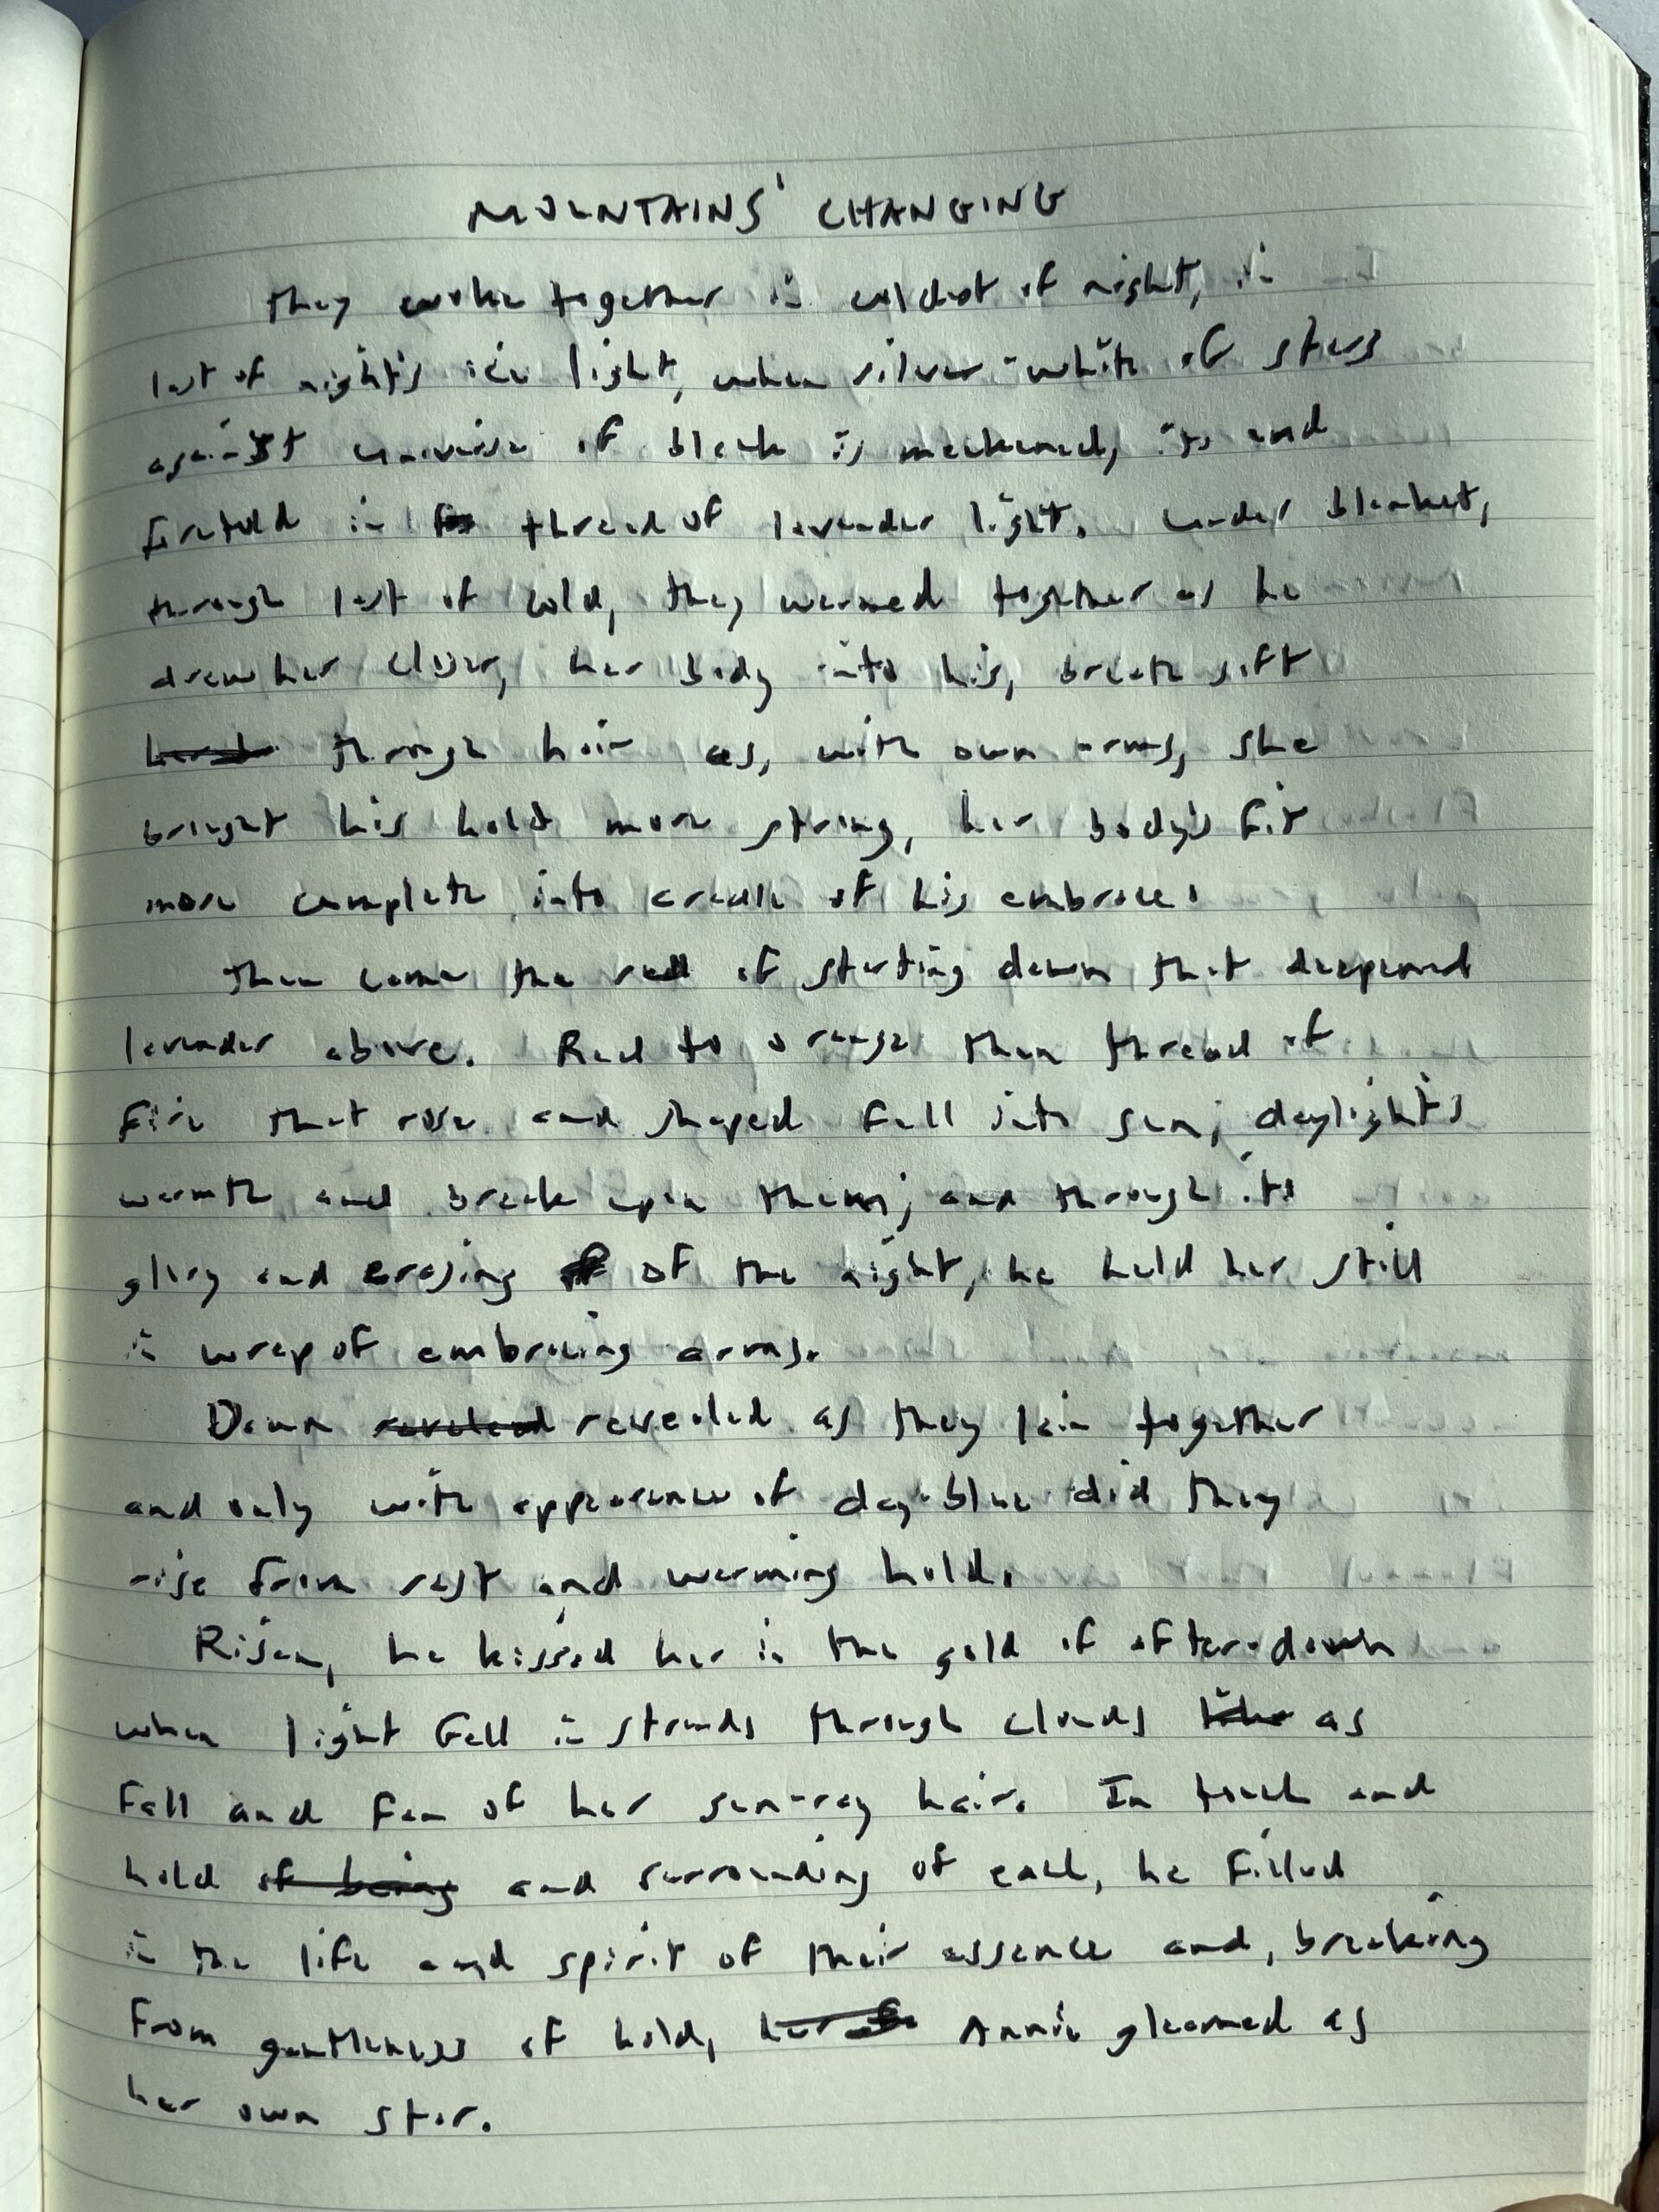 MOUNTAINS' CHANGING
They woke together in coldest of night, in
last of night's ice light, when silver-white of stars
against universe of black is weakened, its end
foretold in thread of lavender light. Under blanket,
through last of cold, they warmed together as he
drew her closer, her body into his, breath soft
through hair as, with own arms, she
brought his hold more strong, her body's fit
more complete into cradle of his embrace.
Then came the red of starting dawn that deepened
lavender above. Red to orange then thread of
fire that rose and shaped full into sun, daylight's
warmth and break upon them; and through its
glory and erasing of the night, he held her still
in wrap of embracing arms.
Dawn revealed as they lain together
and only with appearance of day-blue did they
rise from rest and warming hold.
Risen, he kissed her in the gold of after-dawn
when light fell in strands through clouds as
fall and fan of her sun-ray hair. In touch and
hold and surrounding of each, he filled
in the life and spirit of their essence and, breaking
from gentleness of hold, Annie gleamed as
her own star.